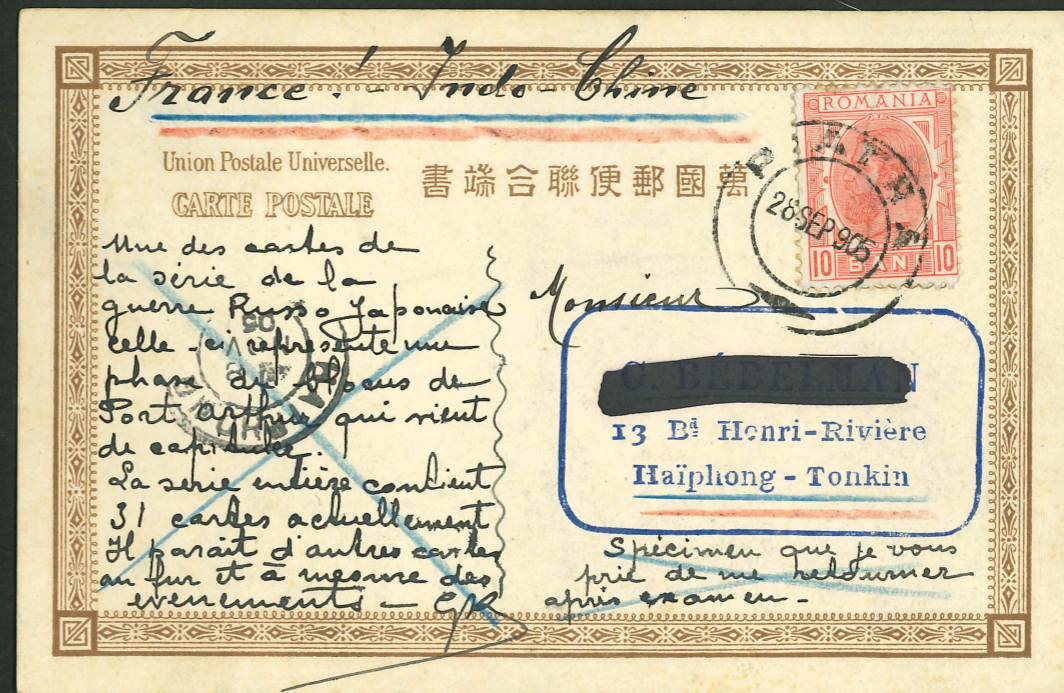 France! - Indo-Chine
ROMANIA
10 BANI 10
28 SEP 905
Union Postale Universelle.
書端合聯便郵國萬
CARTE POSTALE
Une des cartes de
la série de la
guerre Russo Japonaise
celle-ci représente une
phase du blocus de
Port Arthur qui vient
de capituler.
La serie entière contient
31 cartes actuellement
Il parait d'autres cartes
au fur et à mesure des
evenements - GR
Monsieur
13 Bd Henri-Rivière
Haïphong - Tonkin
Spécimen que je vous
prie de me retourner
après examen -